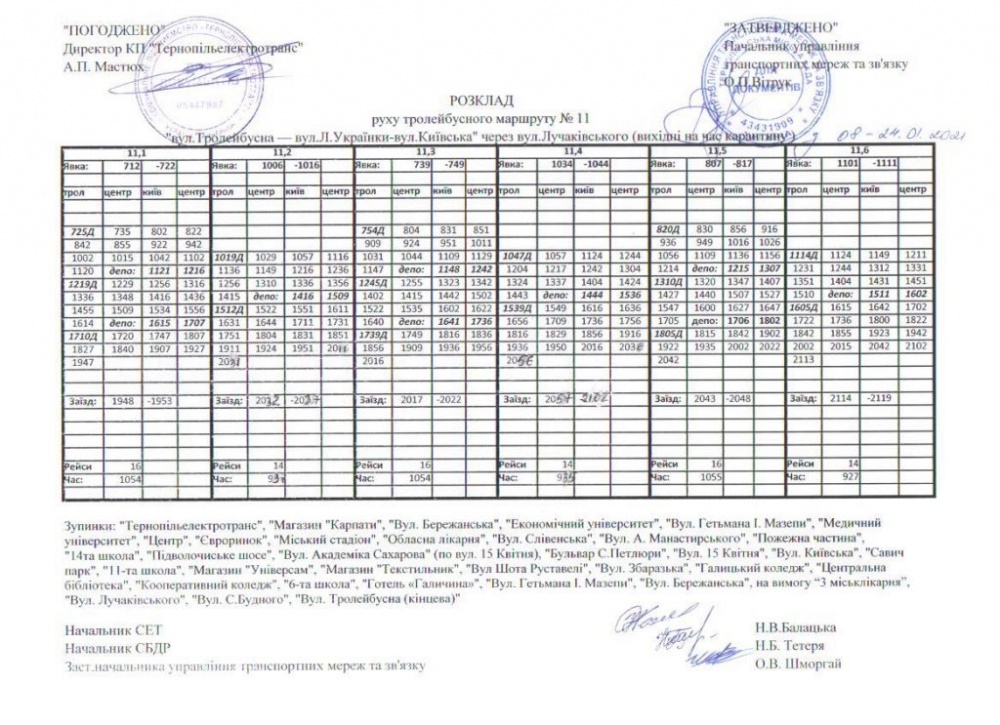 "ПОГОДЖЕНО"
Директор КП "Тернопільелектротранс"
А.П. Мастюх
"ЗАТВЕРДЖЕНО"
Начальник управління
транспортних мереж та зв'язку
О.П.Вітрук
ДЛЯ ДОКУМЕНТІВ
43431909
05447987
РОЗКЛАД
руху тролейбусного маршруту № 11
"вул.Тролейбусна — вул.Л.Українки-вул.Київська" через вул.Лучаківського (вихідні на час карантину) з 08 - 24.01.2021
11,1 11,2 11,3 11,4 11,5 11,6
Явка: 712 -722 Явка: 1006 -1016 Явка: 739 -749 Явка: 1034 -1044 Явка: 807 -817 Явка: 1101 -1111
трол центр київ центр трол центр київ центр трол центр київ центр трол центр київ центр трол центр київ центр трол центр київ центр
725Д 735 802 822 754Д 804 831 851 820Д 830 856 916
842 855 922 942 909 924 951 1011 936 949 1016 1026
1002 1015 1042 1102 1019Д 1029 1057 1116 1031 1044 1109 1129 1047Д 1057 1124 1244 1056 1109 1136 1156 1114Д 1124 1149 1211
1120 депо: 1121 1216 1136 1149 1216 1236 1147 депо: 1148 1242 1204 1217 1242 1304 1214 депо: 1215 1307 1231 1244 1312 1331
1219Д 1229 1256 1316 1256 1310 1336 1356 1245Д 1255 1323 1342 1324 1337 1404 1424 1310Д 1320 1347 1407 1351 1404 1431 1451
1336 1348 1416 1436 1415 депо: 1416 1509 1402 1415 1442 1502 1443 депо: 1444 1536 1427 1440 1507 1527 1510 депо: 1511 1602
1455 1509 1534 1556 1512Д 1522 1551 1611 1522 1535 1602 1622 1539Д 1549 1616 1636 1547 1600 1627 1647 1605Д 1615 1642 1702
1614 депо: 1615 1707 1631 1644 1711 1731 1640 депо: 1641 1736 1656 1709 1736 1756 1705 депо: 1706 1802 1722 1736 1800 1822
1710Д 1720 1747 1807 1751 1804 1831 1851 1739Д 1749 1816 1836 1816 1829 1856 1916 1805Д 1815 1842 1902 1842 1855 1923 1942
1827 1840 1907 1927 1911 1924 1951 1856 1909 1936 1956 1936 1950 2016 1922 1935 2002 2022 2002 2015 2042 2102
1947 2031 2016 2056 2042 2113
Заїзд: 1948 -1953 Заїзд: 2032 -2037 Заїзд: 2017 -2022 Заїзд: 2057 -2102 Заїзд: 2043 -2048 Заїзд: 2114 -2119
Рейси 16 Рейси 14 Рейси 16 Рейси 14 Рейси 16 Рейси 14
Час: 1054 Час: Час: 1054 Час: Час: 1055 Час: 927
Зупинки: "Тернопільелектротранс", "Магазин "Карпати", "Вул. Бережанська", "Економічний університет", "Вул. Гетьмана І. Мазепи", "Медичний
університет", "Центр", "Євроринок", "Міський стадіон", "Обласна лікарня", "Вул. Слівенська", "Вул. А. Манастирського", "Пожежна частина",
"14та школа", "Підволочиське шосе", "Вул. Академіка Сахарова" (по вул. 15 Квітня), "Бульвар С.Петлюри", "Вул. 15 Квітня", "Вул. Київська", "Савич
парк", "11-та школа", "Магазин "Універсам", "Магазин "Текстильник", "Вул Шота Руставелі", "Вул. Збаразька", "Галицький коледж", "Центральна
бібліотека", "Кооперативний коледж", "6-та школа", "Готель «Галичина»", "Вул. Гетьмана І. Мазепи", "Вул. Бережанська", на вимогу "3 міськлікарня",
"Вул. Лучаківського", "Вул. С.Будного", "Вул. Тролейбусна (кінцева)"
Начальник СЕТ
Начальник СБДР
Заст.начальника управління транспортних мереж та зв'язку
Н.В.Балацька
Н.Б. Тетеря
О.В. Шморгай